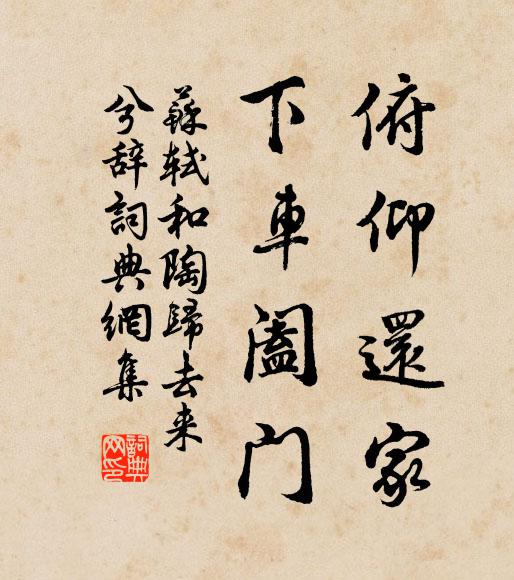 俯仰還家
下車闔门
蘇軾和陶歸去来
兮辞詞典網集
詞典网印